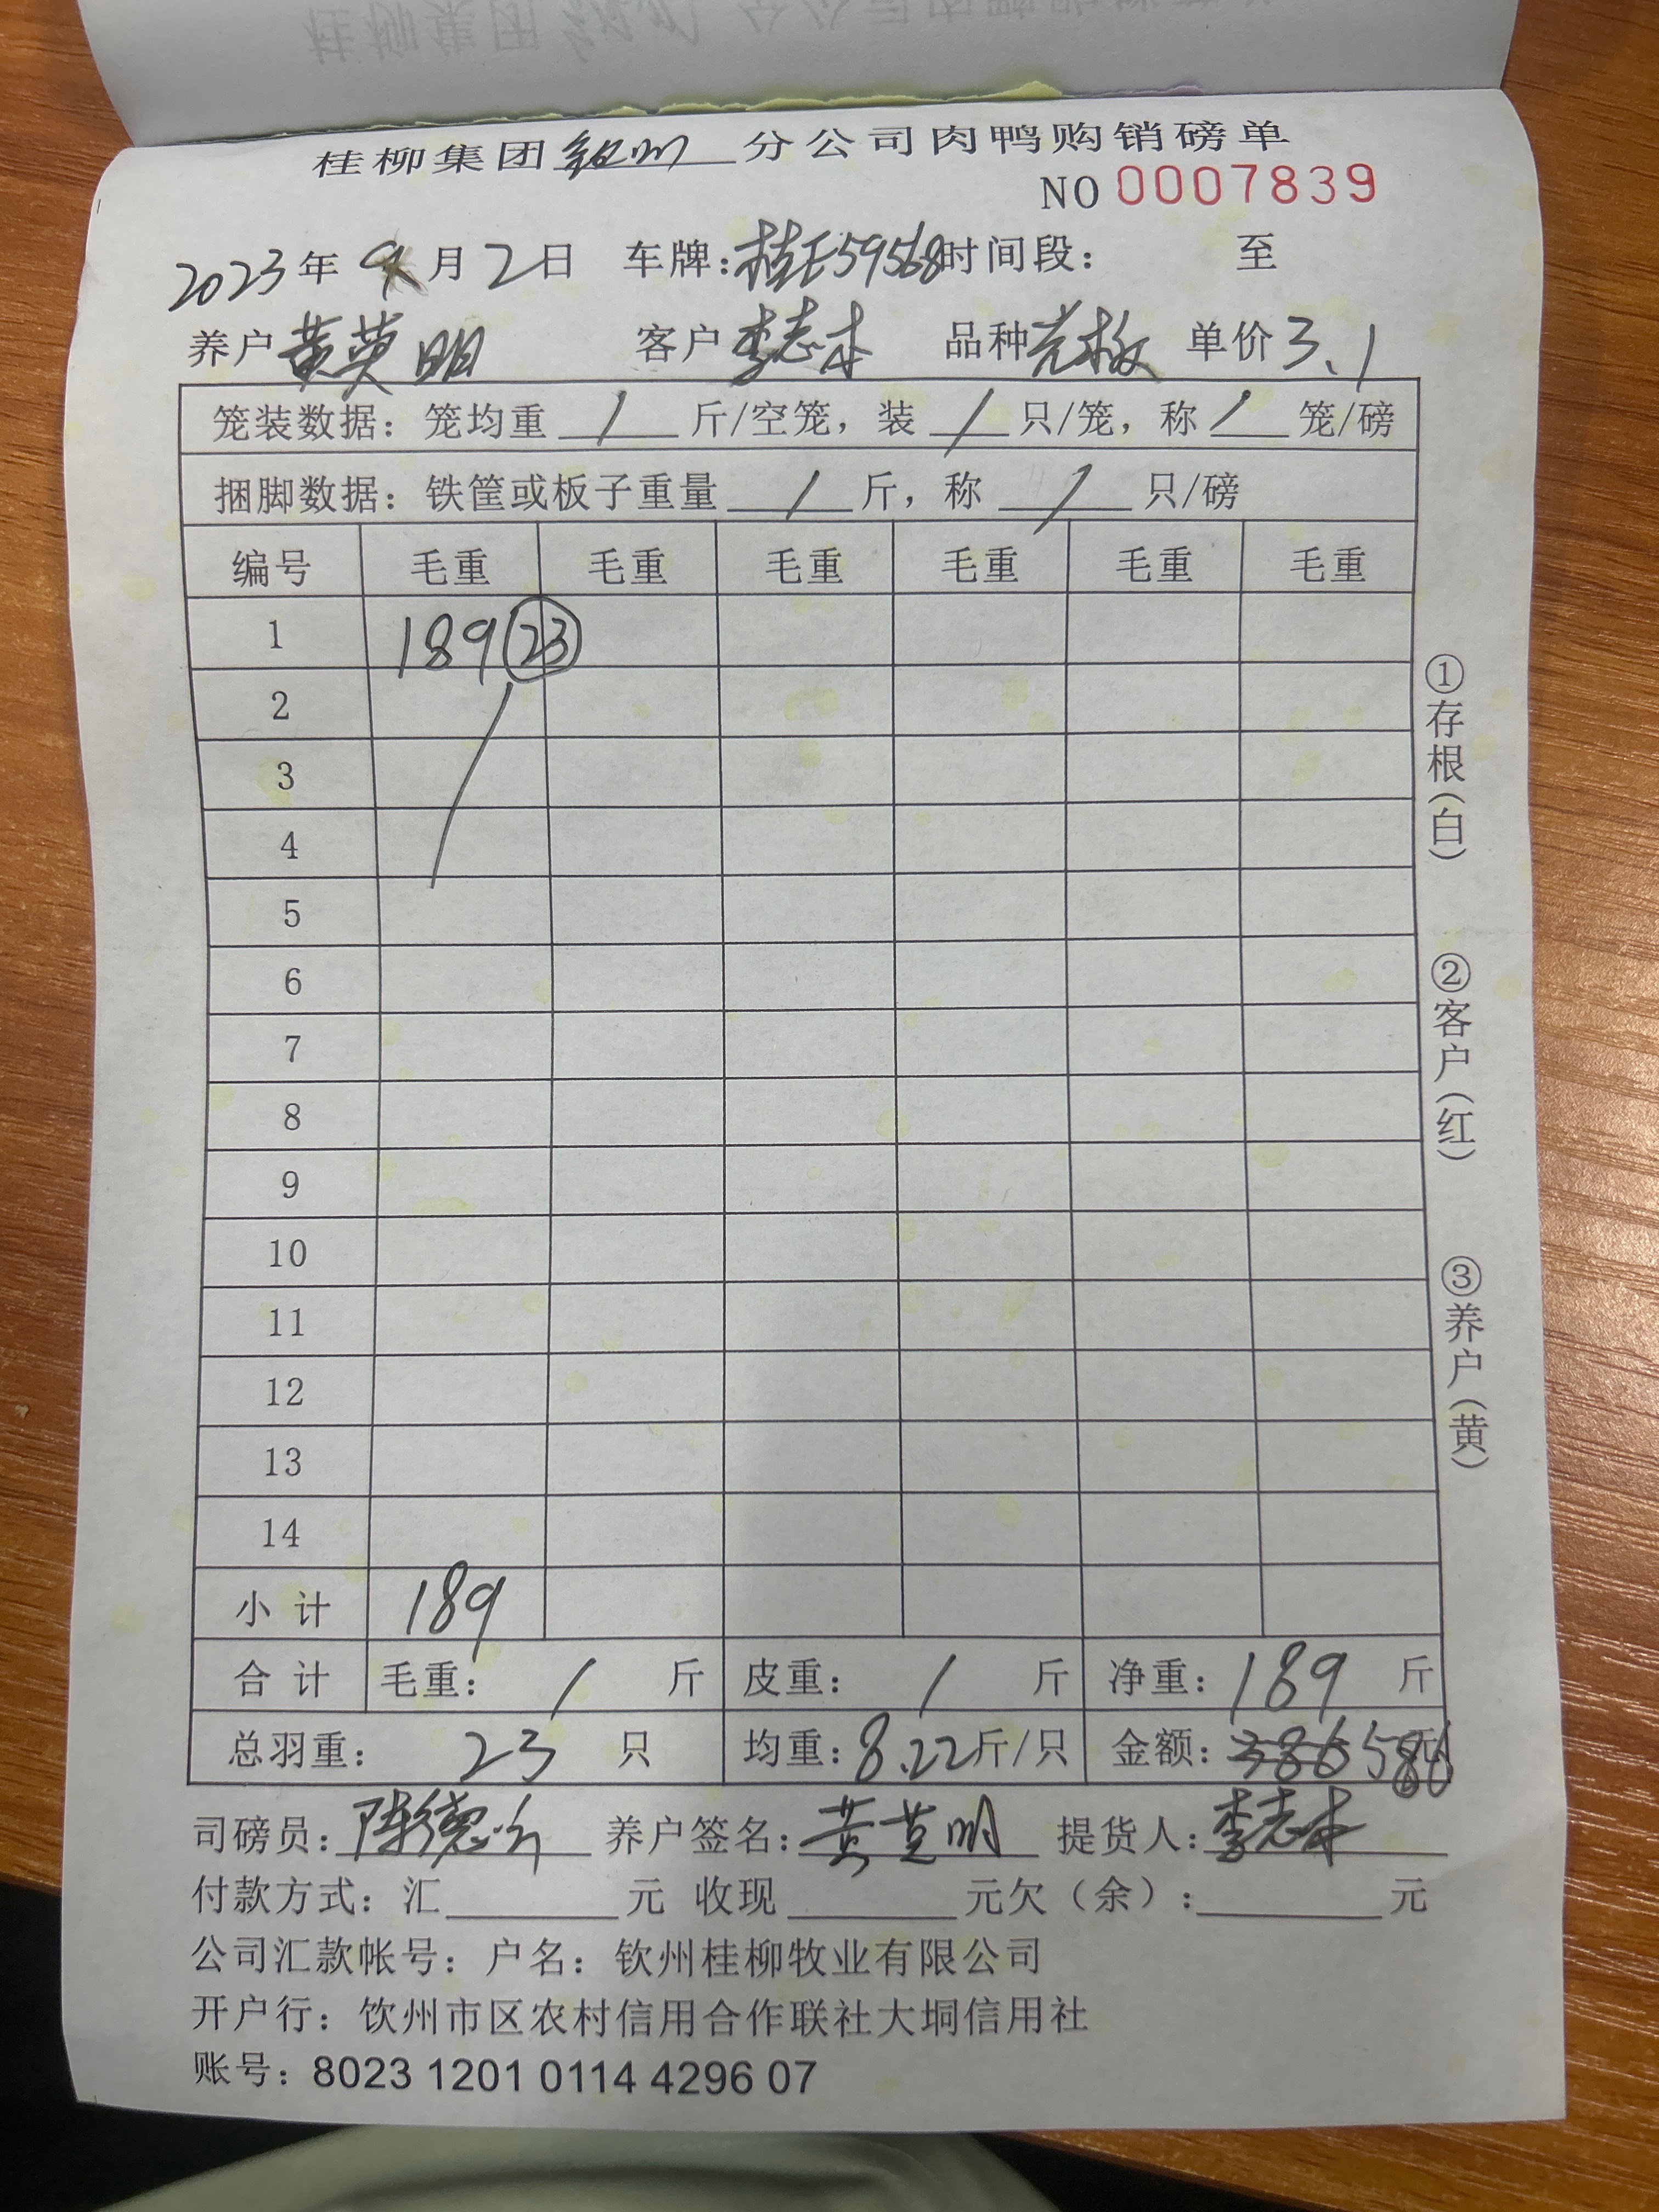 桂柳集团钦州分公司肉鸭购销磅单
NO 0007839
2023年9月2日 车牌:桂E59568时间段: 至
养户黄英明 客户李志本 品种 单价3.1
笼装数据:笼均重 / 斤/空笼,装 / 只/笼,称 / 笼/磅
捆脚数据:铁筐或板子重量 / 斤,称 / 只/磅
编号 毛重 毛重 毛重 毛重 毛重 毛重
1 189 23
2
3
4
5
6
7
8
9
10
11
12
13
14
小计 189
合计 毛重: / 斤 皮重: / 斤 净重:189 斤
总羽重: 23 只 均重:8.22斤/只 金额:386 586元
司磅员:陈德 养户签名:黄英明 提货人:李志本
付款方式:汇 元 收现 元欠(余): 元
公司汇款帐号:户名:钦州桂柳牧业有限公司
开户行:饮州市区农村信用合作联社大垌信用社
账号:8023 1201 0114 4296 07
①存根(白)
②客户(红)
③养户(黄)